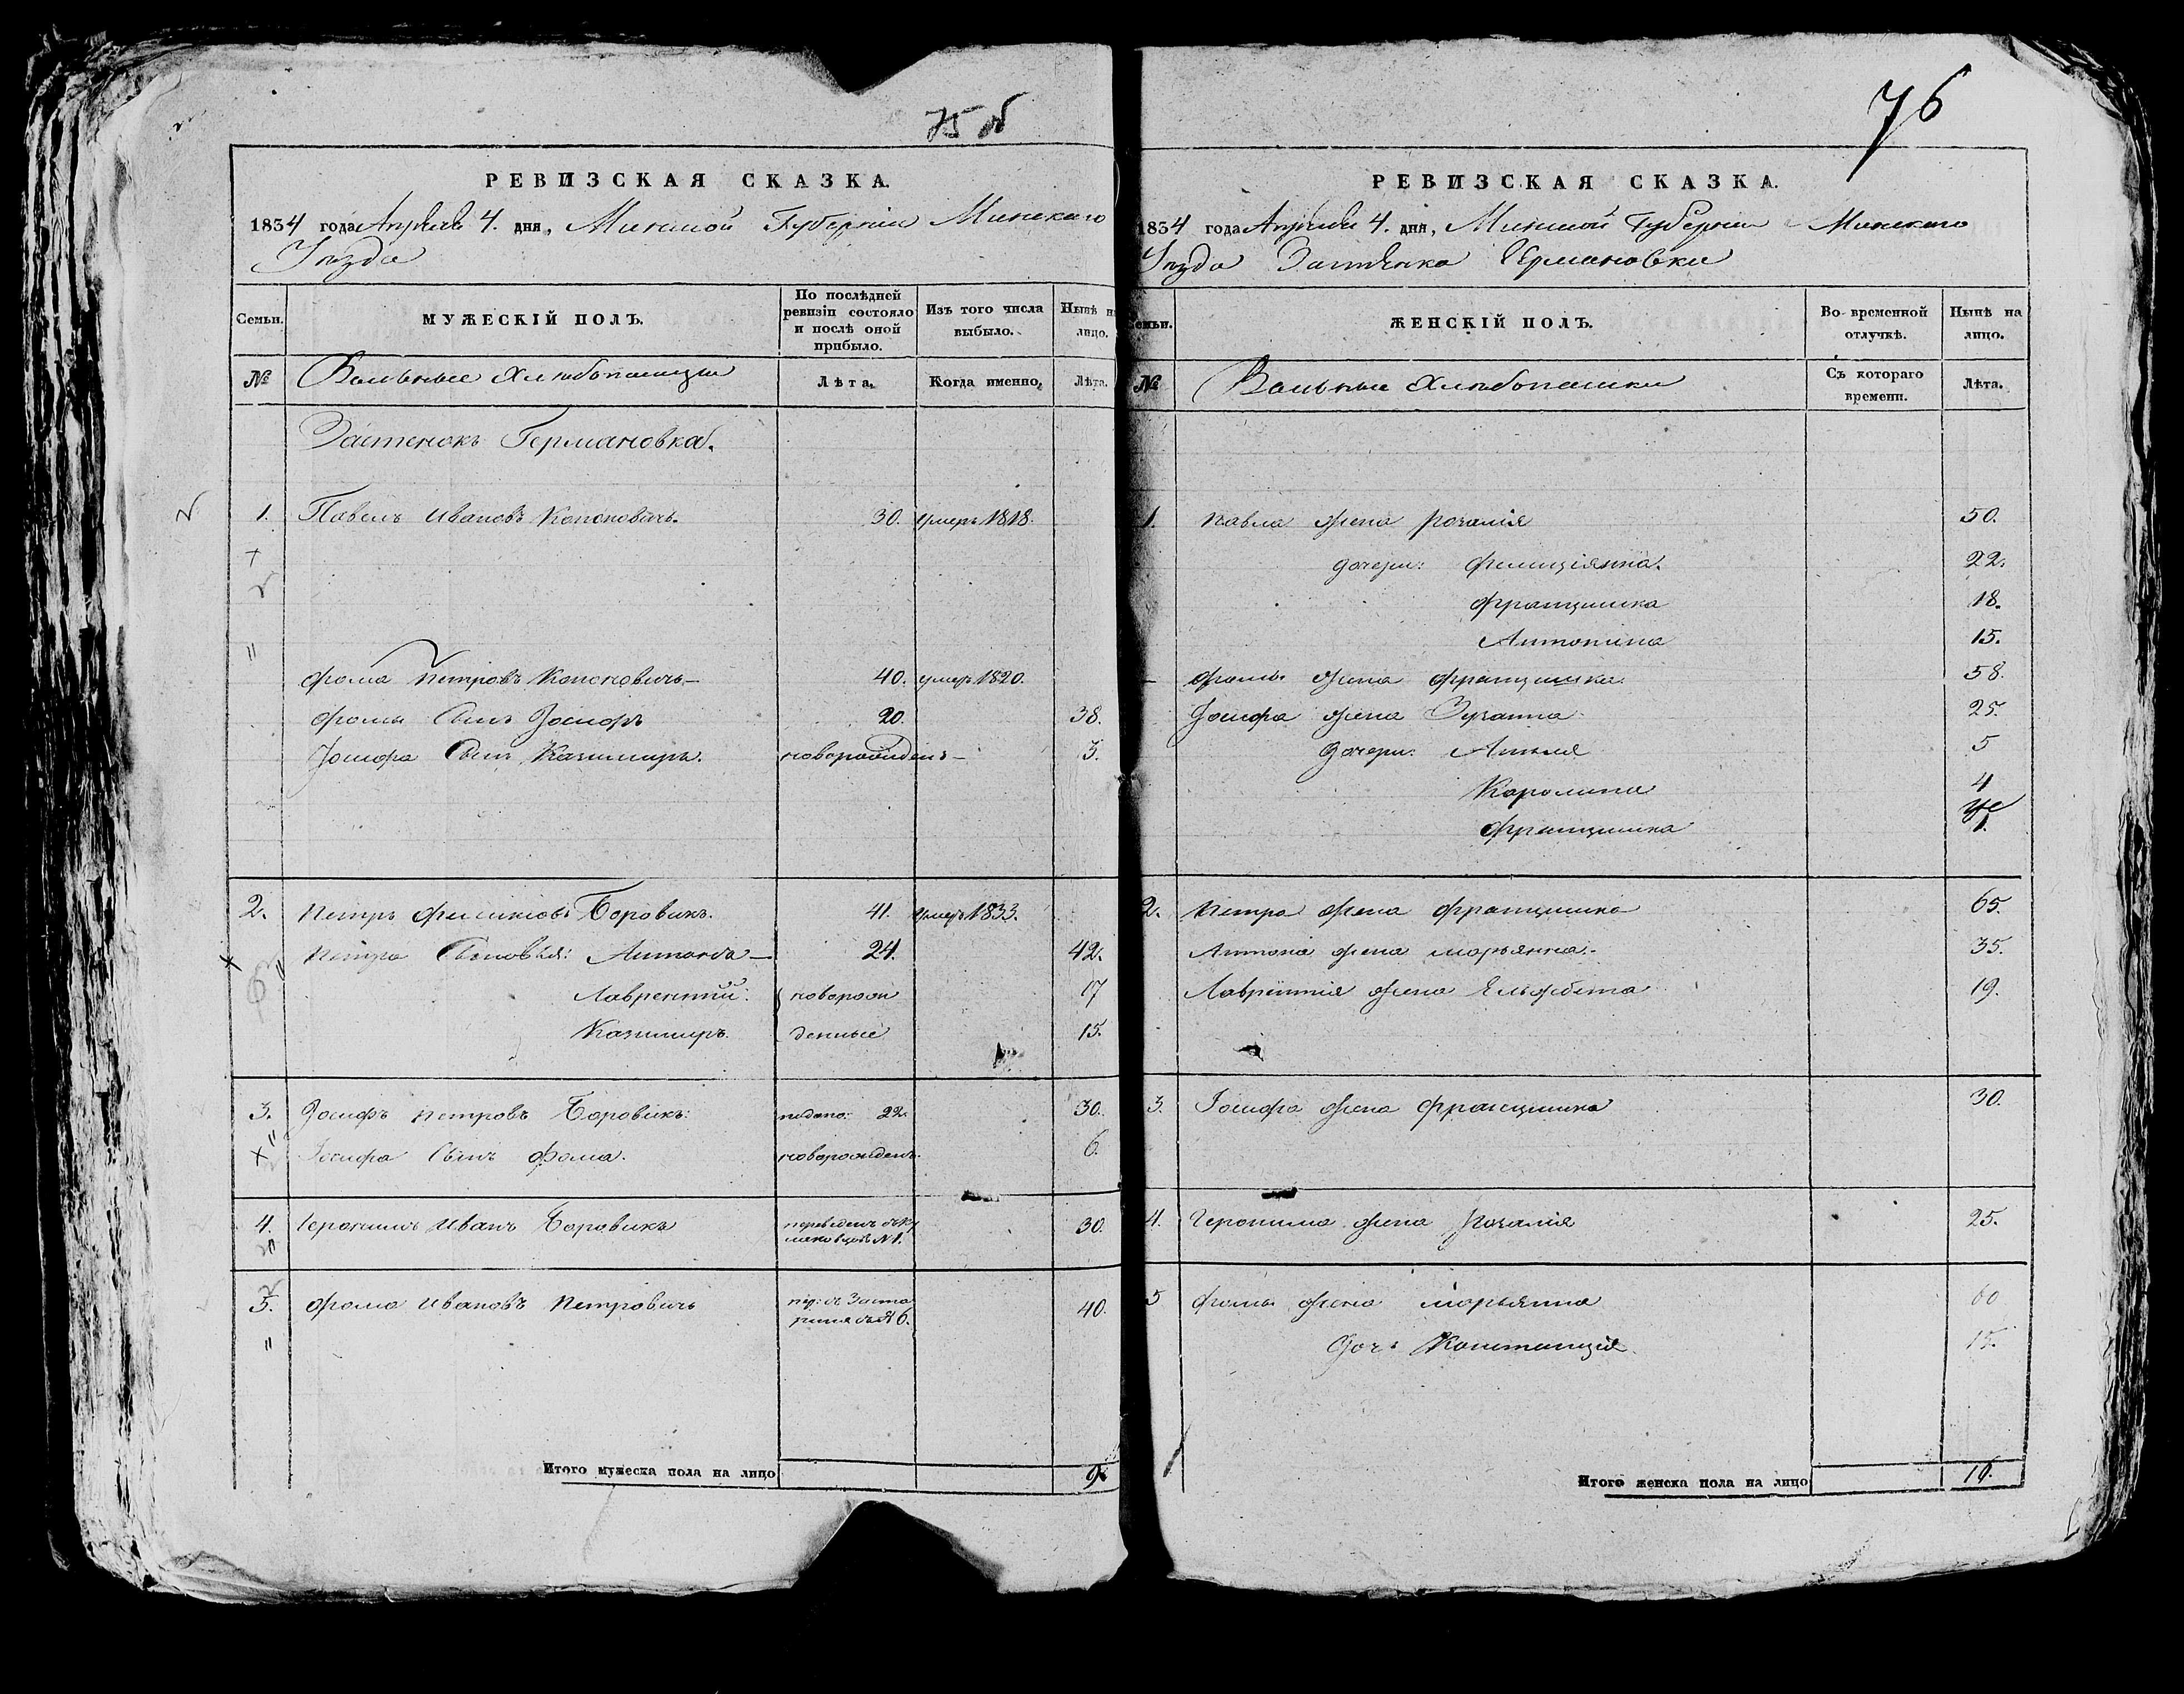 75 об
РЕВИЗСКАЯ СКАЗКА.
1834 года Апреля 4. дня, Минской Губерніи Минскаго
Уѣзда
Семьи.
МУЖЕСКІЙ ПОЛЪ.
По послѣдней ревизіи состояло и послѣ оной прибыло.
Изъ того числа выбыло.
Нынѣ на лицо.
№
Вольные Хлѣбопашцы
Лѣта.
Когда именно.
Лѣта.
Застенокъ Германовка.
1. Павелъ Ивановъ Кононовичъ. 30. умеръ 1818.
Фома Петровъ Кононовичъ 40. умеръ 1820.
Фомы Сынъ Іосифъ 20. 38.
Іосифа Сынъ Казимиръ. новорожденъ 3.
2. Петръ Боровикъ. 41. умеръ 1833.
Петра Сыновья: Антонъ 24. 42.
Лаврентій. новорож 17
Казимиръ. денные 15.
3. Іосифъ Петровъ Боровикъ. 22. 30.
Іосифа Сынъ Фома. новорожденъ. 6.
4. Іеронимъ Иванъ Боровикъ переведенъ №1. 30.
5. Фома Ивановъ Петровичъ №6. 40.
Итого мужеска пола на лицо 9
76
РЕВИЗСКАЯ СКАЗКА.
1834 года Апреля 4. дня, Минской Губерніи Минскаго
Уѣзда Застѣнка Германовки
Семьи.
ЖЕНСКІЙ ПОЛЪ.
Во временной отлучкѣ.
Нынѣ на лицо.
№
Вольные Хлѣбопашки
Съ котораго времени.
Лѣта.
1. Павла жена Розалія 50.
дочери: Фелиціянна. 22.
Францишка 18.
Антонина 15.
Фомы жена Францишка 58.
Іосифа жена Зузанна 25.
дочери: Анеля 5
Каролина 4
Францишка 1.
2. Петра жена Францишка 65.
Антона жена Марьянна 35.
Лаврентія жена Ельжбета 19.
3. Іосифа жена Францишка 30.
4. Іеронима жена Розалія 25.
5 Фомы жена Марьянна 60
Доч: Констанція 15.
Итого женска пола на лицо 16.